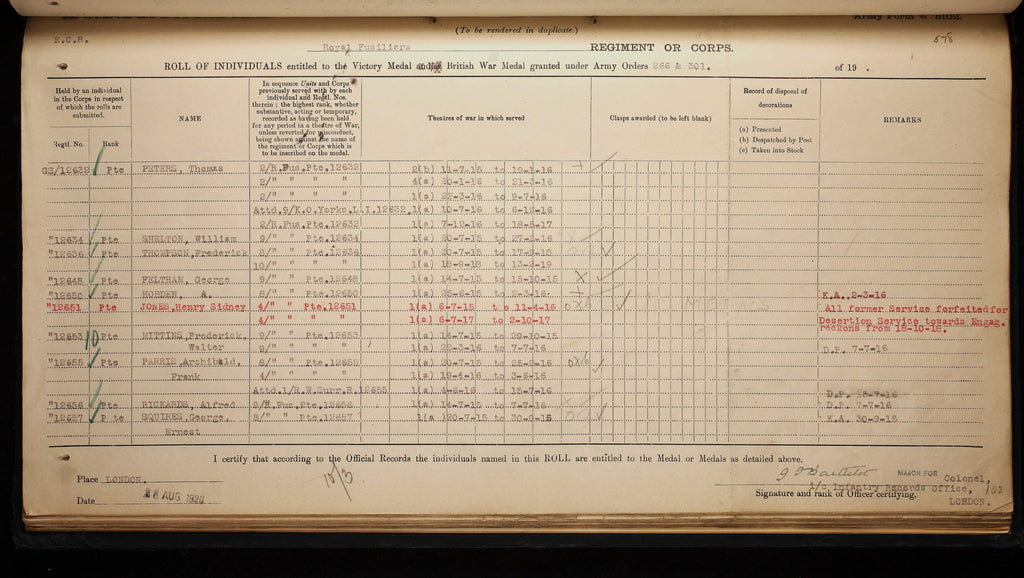 Army Form W. 5102.
(To be rendered in duplicate.)
E.C.R.
578
Royal Fusiliers REGIMENT OR CORPS.
ROLL OF INDIVIDUALS entitled to the Victory Medal and/or British War Medal granted under Army Orders 266 & 301. of 19 .
Held by an individual in the Corps in respect of which the rolls are submitted.
Regtl. No. Rank
NAME
In sequence Units and Corps previously served with by each individual and Regtl. Nos. therein ; the highest rank, whether substantive, acting or temporary, recorded as having been held for any period in a theatre of War, unless reverted for misconduct, being shown against the name of the regiment or Corps which is to be inscribed on the medal.
Theatres of war in which served
Clasps awarded (to be left blank)
Record of disposal of decorations
(a) Presented
(b) Despatched by Post
(c) Taken into Stock
REMARKS
GS/12632 Pte PETERS, Thomas 2/R.Fus.Pte.12632 2(b) 11-7-15 to 19-1-16
2/" " " 4(a) 20-1-16 to 21-3-16
2/" " " 1(a) 22-3-16 to 9-7-16
Attd.9/K.O.Yorks.L.I.12632. 1(a) 10-7-16 to 6-12-16
2/R.Fus.Pte.12632 1(a) 7-12-16 to 18-5-17
"12634 Pte SHELTON, William 9/" " Pte.12634 1(a) 20-7-15 to 27-2-16
"12636 Pte THOMPSON,Frederick 8/" " Pte.12636 1(a) 20-7-15 to
10/" " " 1(a) to 13-2-19
"12648 Pte FELTHAM, George 9/" " Pte.12648 1(a) 14-7-15 to 15-10-15
"12650 Pte HOBDEN, A. 8/" " Pte.12650 1(a) to 2-3-16. K.A. 2-3-16
"12651 Pte JONES,Henry Sidney 4/" " Pte.12651 1(a) 6-7-15 to 11-4-16 All former Service forfaited for
4/" " " 1(a) 6-7-17 to 2-10-17 Desertion Service towards Engag.
reckons from 18-10-18.
"12653 Pte MITTINS,Frederick, 9/" " Pte.12653 1(a) 14-7-15 to 29-10-15
Walter 9/" " " 1(a) 22-3-16 to 7-7-16 D.P. 7-7-16
"12655 Pte PARRIS,Archibald, 8/" " Pte.12655 1(a) 20-7-15 to
Frank 4/" " " 1(a) 19-4-16 to 3-6-16
Attd.1/R.W.Surr.R.12655 1(a) 4-6-16 to 15-7-16 D.P. 15-7-16
"12656 Pte RICKARDS, Alfred 9/R.Fus.Pte.12656 1(a) 14-7-15 to 7-7-16 D.P. 7-7-16
"12657 Pte SQUIRES,George, 8/" " Pte.12657 1(a) 20-7-15 to 30-9-15 K.A. 30-9-15
Ernest
I certify that according to the Official Records the individuals named in this ROLL are entitled to the Medal or Medals as detailed above.
Place LONDON.
Date 28 AUG 1920
10/3
MAJOR FOR Colonel,
i/c Infantry Records Office, /02
Signature and rank of Officer certifying. LONDON.